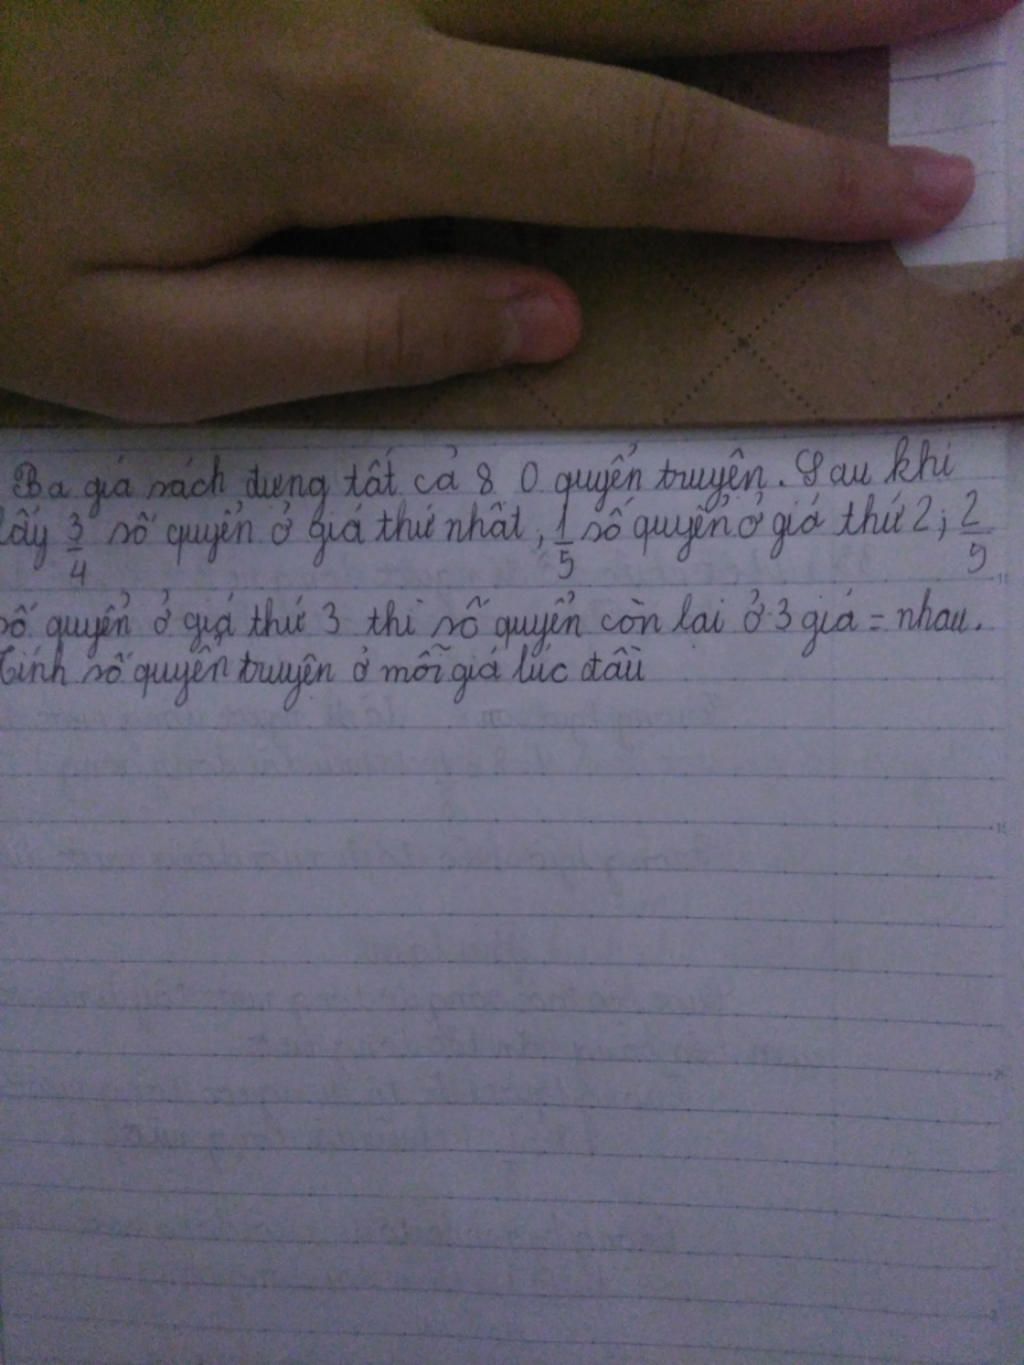 Ba giá sách đựng tất cả 8 0 quyển truyện. Sau khi
lấy 3/4 số quyển ở giá thứ nhất, 1/5 số quyển ở giá thứ 2; 2/5
số quyển ở giá thứ 3 thì số quyển còn lại ở 3 giá = nhau.
Tính số quyển truyện ở mỗi giá lúc đầu